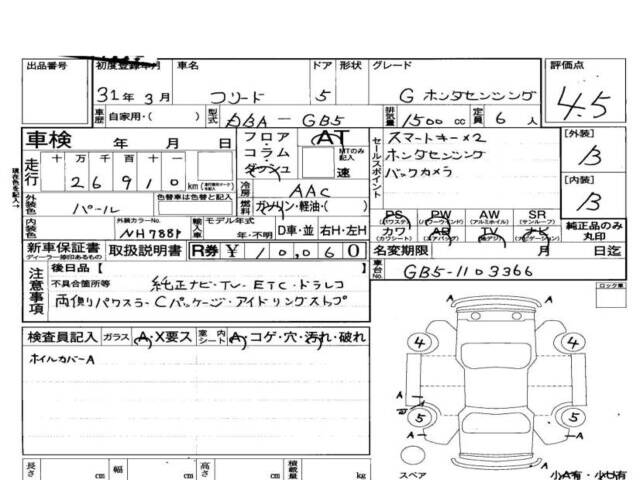 出品番号 初度登録年月 車名 ドア 形状 グレード 評価点
31年3月 フリード 5 G ホンダセンシング 4.5
車歴 自家用・( ) 型式 DBA-GB5 排気量 1500cc 定員 6人
車検 年 月 日 フロア・コラム・ダッシュ AT MTのみ記入 速
セールスポイント スマートキー×2
ホンダセンシング
バックカメラ
[外装] B
[内装] B
現在色を記入→
走行 十万千百十 26910 km
冷房 AAC
外装色 パール 色替車は色替と記入 燃料 ガソリン・軽油・( )
PS (パワステ) PW (パワーウインド) AW (アルミホイル) SR (サンルーフ)
カワ (カワシート) AB (エアバッグ) TV (地デジ) ナビ (ナビゲーション) 純正品のみ丸印
内装色 外装カラーNo. NH788P 輸入車 モデル年式 年・不明 D車・並 右H・左H
新車保証書 ディーラー捺印あるもの 取扱説明書 R券 ¥10,060 名変期限 月 日迄
車台No. GB5-1103366
注意事項 後日品 [ ]
不具合箇所等 純正ナビ・TV-ETC・ドラレコ
両側パワスラ-Cパッケージ・アイドリングストップ
ロック車
検査員記入 ガラス A・X要ス 室内シート A・コゲ・穴・汚れ・破れ
ホイルカバーA
4 4
A A
A A
5 5
A A
スペア
長さ cm 幅 cm 高さ cm 積載量 kg
小A有・小U有